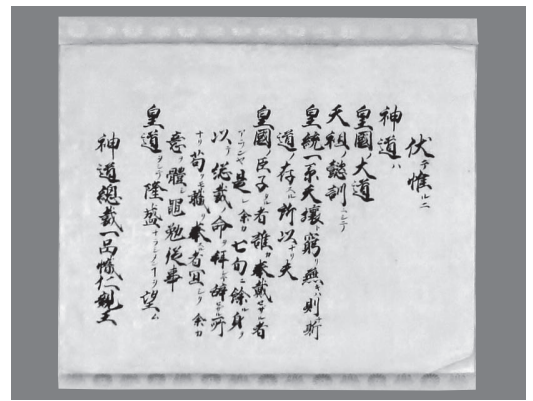 伏テ惟ルニ
神道ハ
皇國ノ大道
天祖ノ懿訓ニシテ
皇統一系天壤ト窮リ無キハ則斯
道ノ存スル所以ナリ夫
皇國ノ臣子タル者誰カ奉戴セサル者
アランヤ是レ余カ七旬ニ餘ル身ヲ
以テ総裁ノ命ヲ辞セサル所
ナリ苟モ職ヲ奉スル者宜シク余カ
意ヲ體シ黽勉從事
皇道ヲシテ隆盛ナラシメン﹁ヲ望ム
神道總裁一品幟仁親王